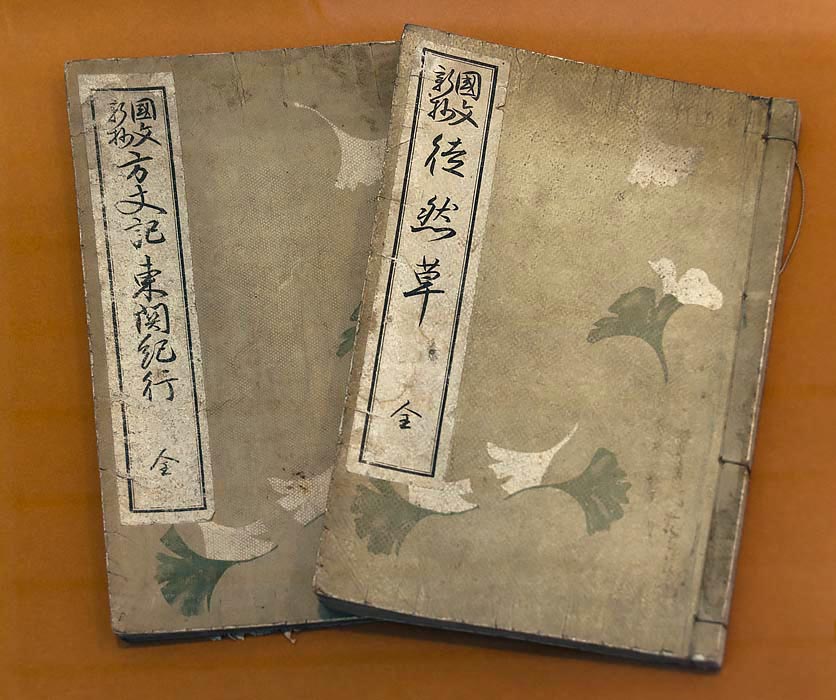 國文
新抄
徒然草
全
國文
新抄
方丈記東関紀行
全